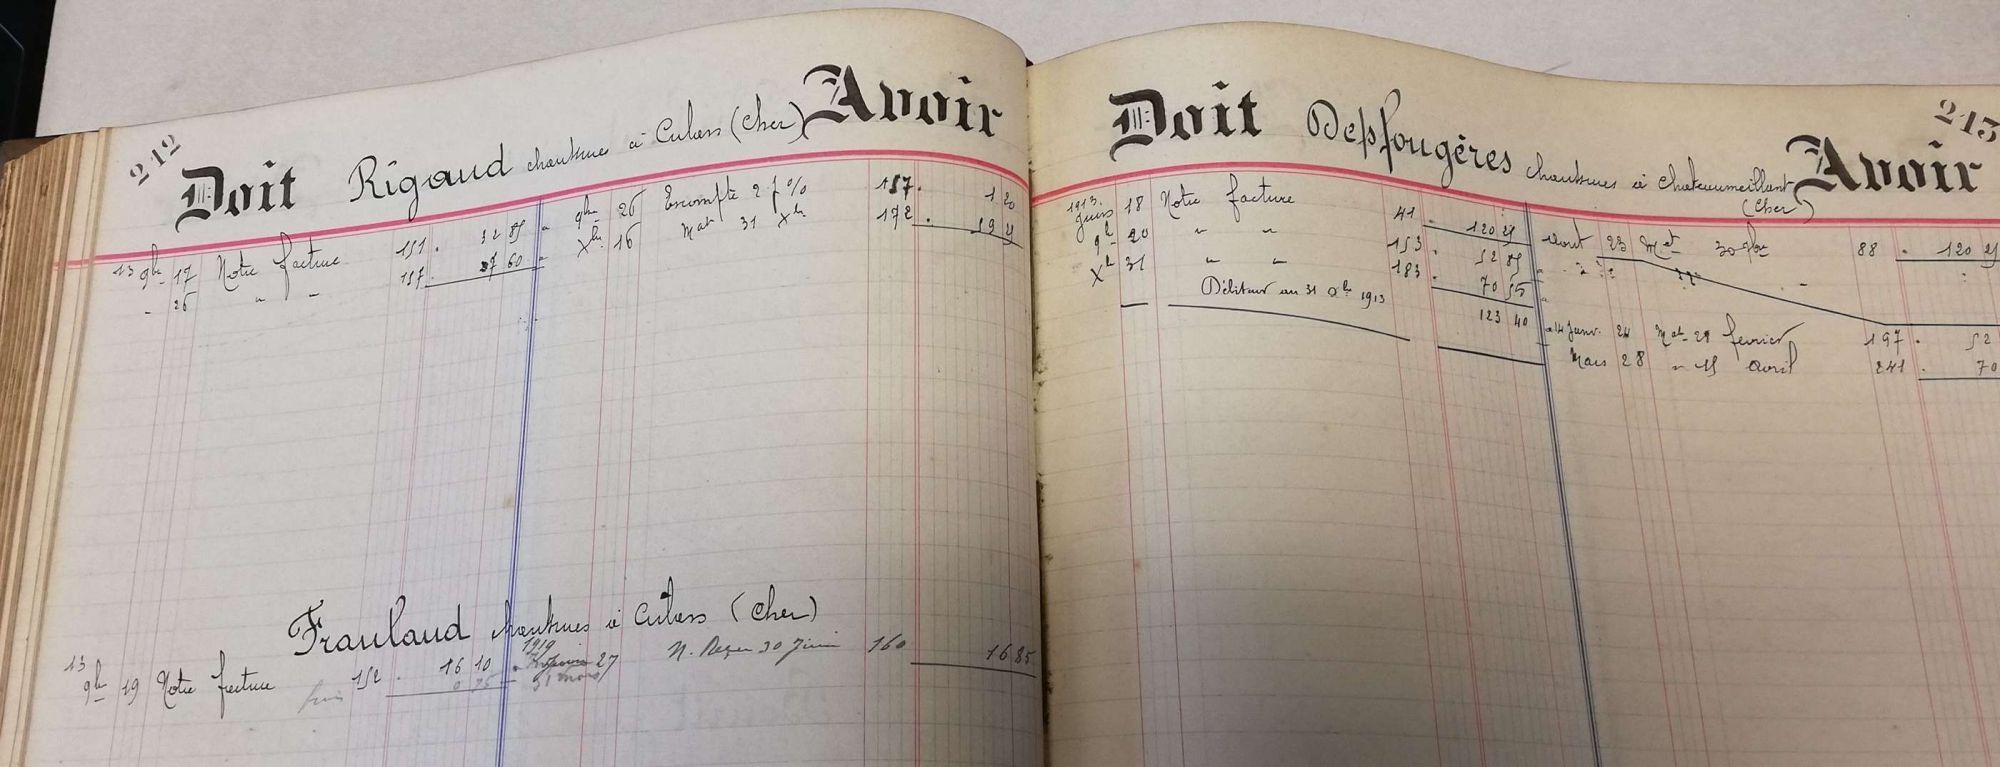 212
Doit Rigaud chaussures à Culan (Cher) Avoir
13 9bre 17 Notre facture 151 . 32 85 " 9bre 26 Escompte 2 % 157 . 1 20
" 26 " " 157 . 27 60 " Xbre 16 Mat 31 Xbre 172 . 59 25
Fraulaud chaussures à Culan (Cher)
13 1919
9bre 19 Notre facture 152 . 16 10 27 N. Reçu 30 Juin 160 16 85
frais 0 75 31 mars
213
Doit Desfougères chaussures à Chateaumeillant (Cher) Avoir
1913 Juin 18 Notre facture 41 . 120 25 " Août 23 Mat 30 9bre 88 . 120 25
9bre 20 " " 153 . 52 85 "
Xbre 31 " " 183 . 70 55 "
Débiteur au 31 Xbre 1913 123 40 " 14 Janv. 24 Mat 28 février 197 . 52
Mars 28 " 15 avril 241 . 70